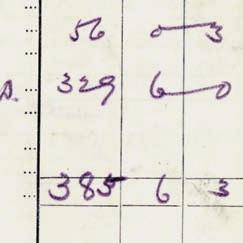 56 0 — 3
s. 329 6 — 0
385 6 3